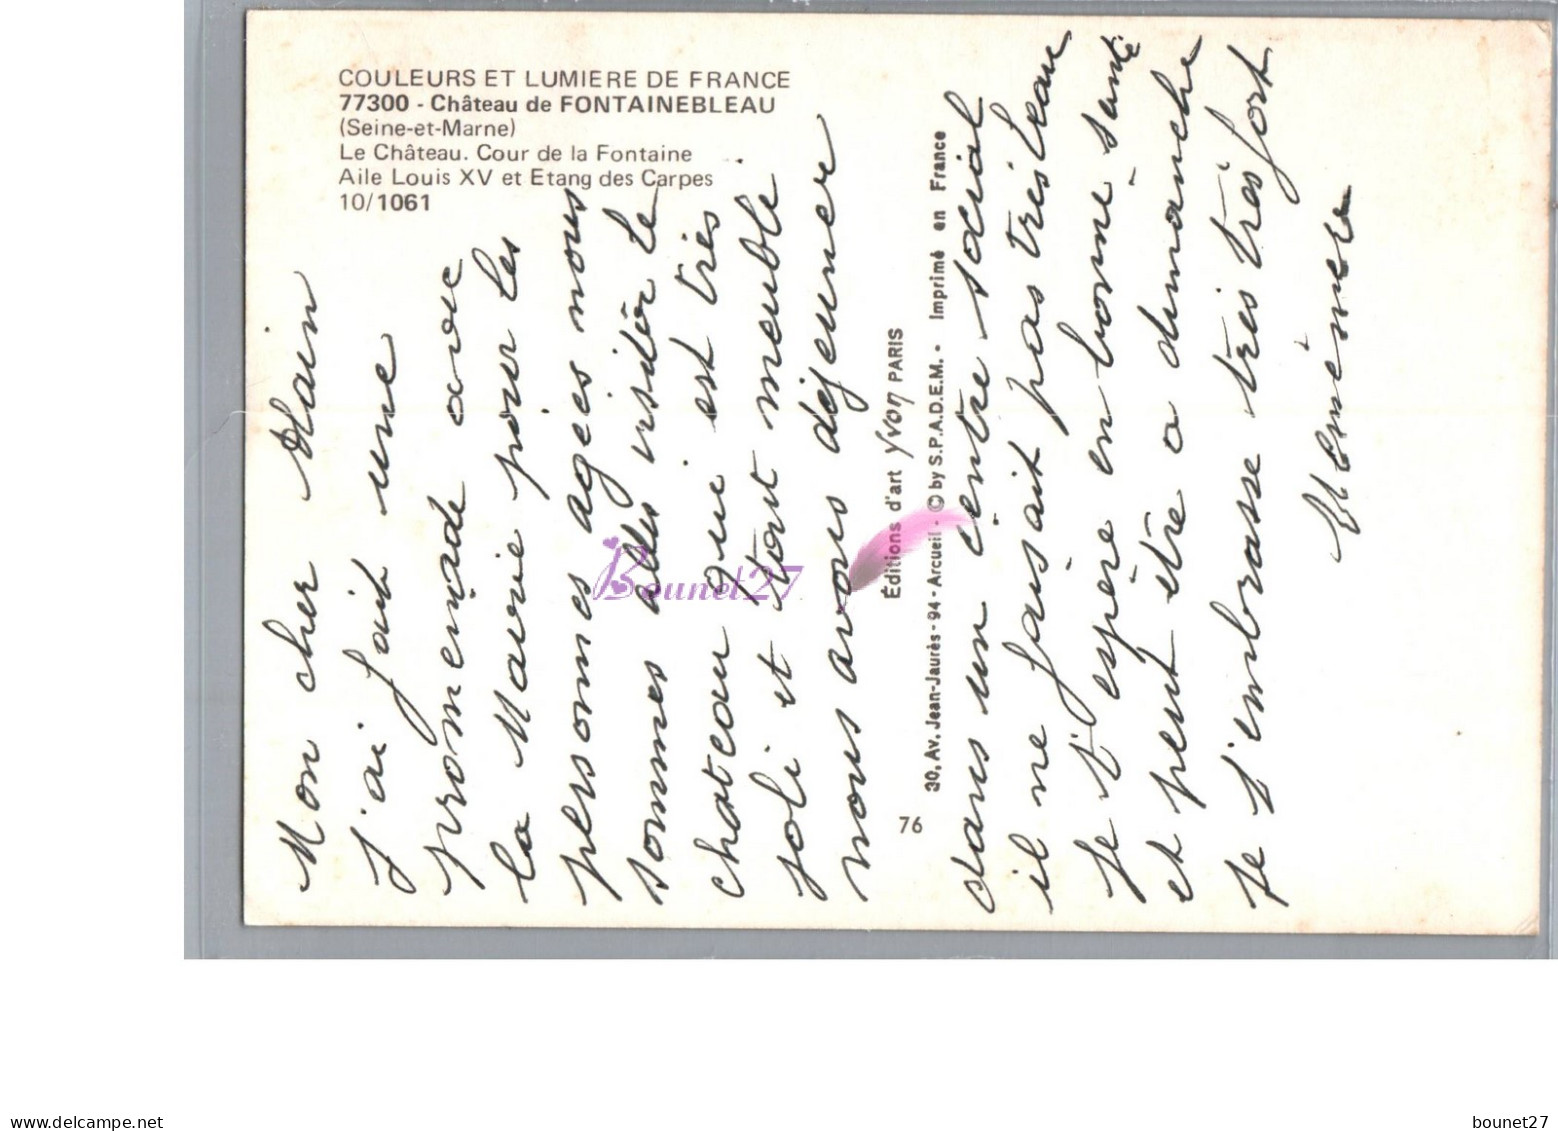 COULEURS ET LUMIERE DE FRANCE
77300 - Château de FONTAINEBLEAU
(Seine-et-Marne)
Le Château. Cour de la Fontaine
Aile Louis XV et Etang des Carpes
10/1061
Mon cher Alain
j'ai fait une
promenade avec
la Mairie pour les
personnes agées nous
sommes allés visiter le
chateau qui est très
joli et tout meublé
nous avons déjeuner
dans un centre social
il ne faisait pas très beau
Je t'espère en bonne santé
et peut être a dimanche
Je t'embrasse très très fort
Mémère
Éditions d'art Yvon PARIS
30, Av. Jean-Jaurès - 94 - Arcueil - © by S.P.A.D.E.M. - Imprimé en France
76
Bounet27
www.delcampe.net
bounet27